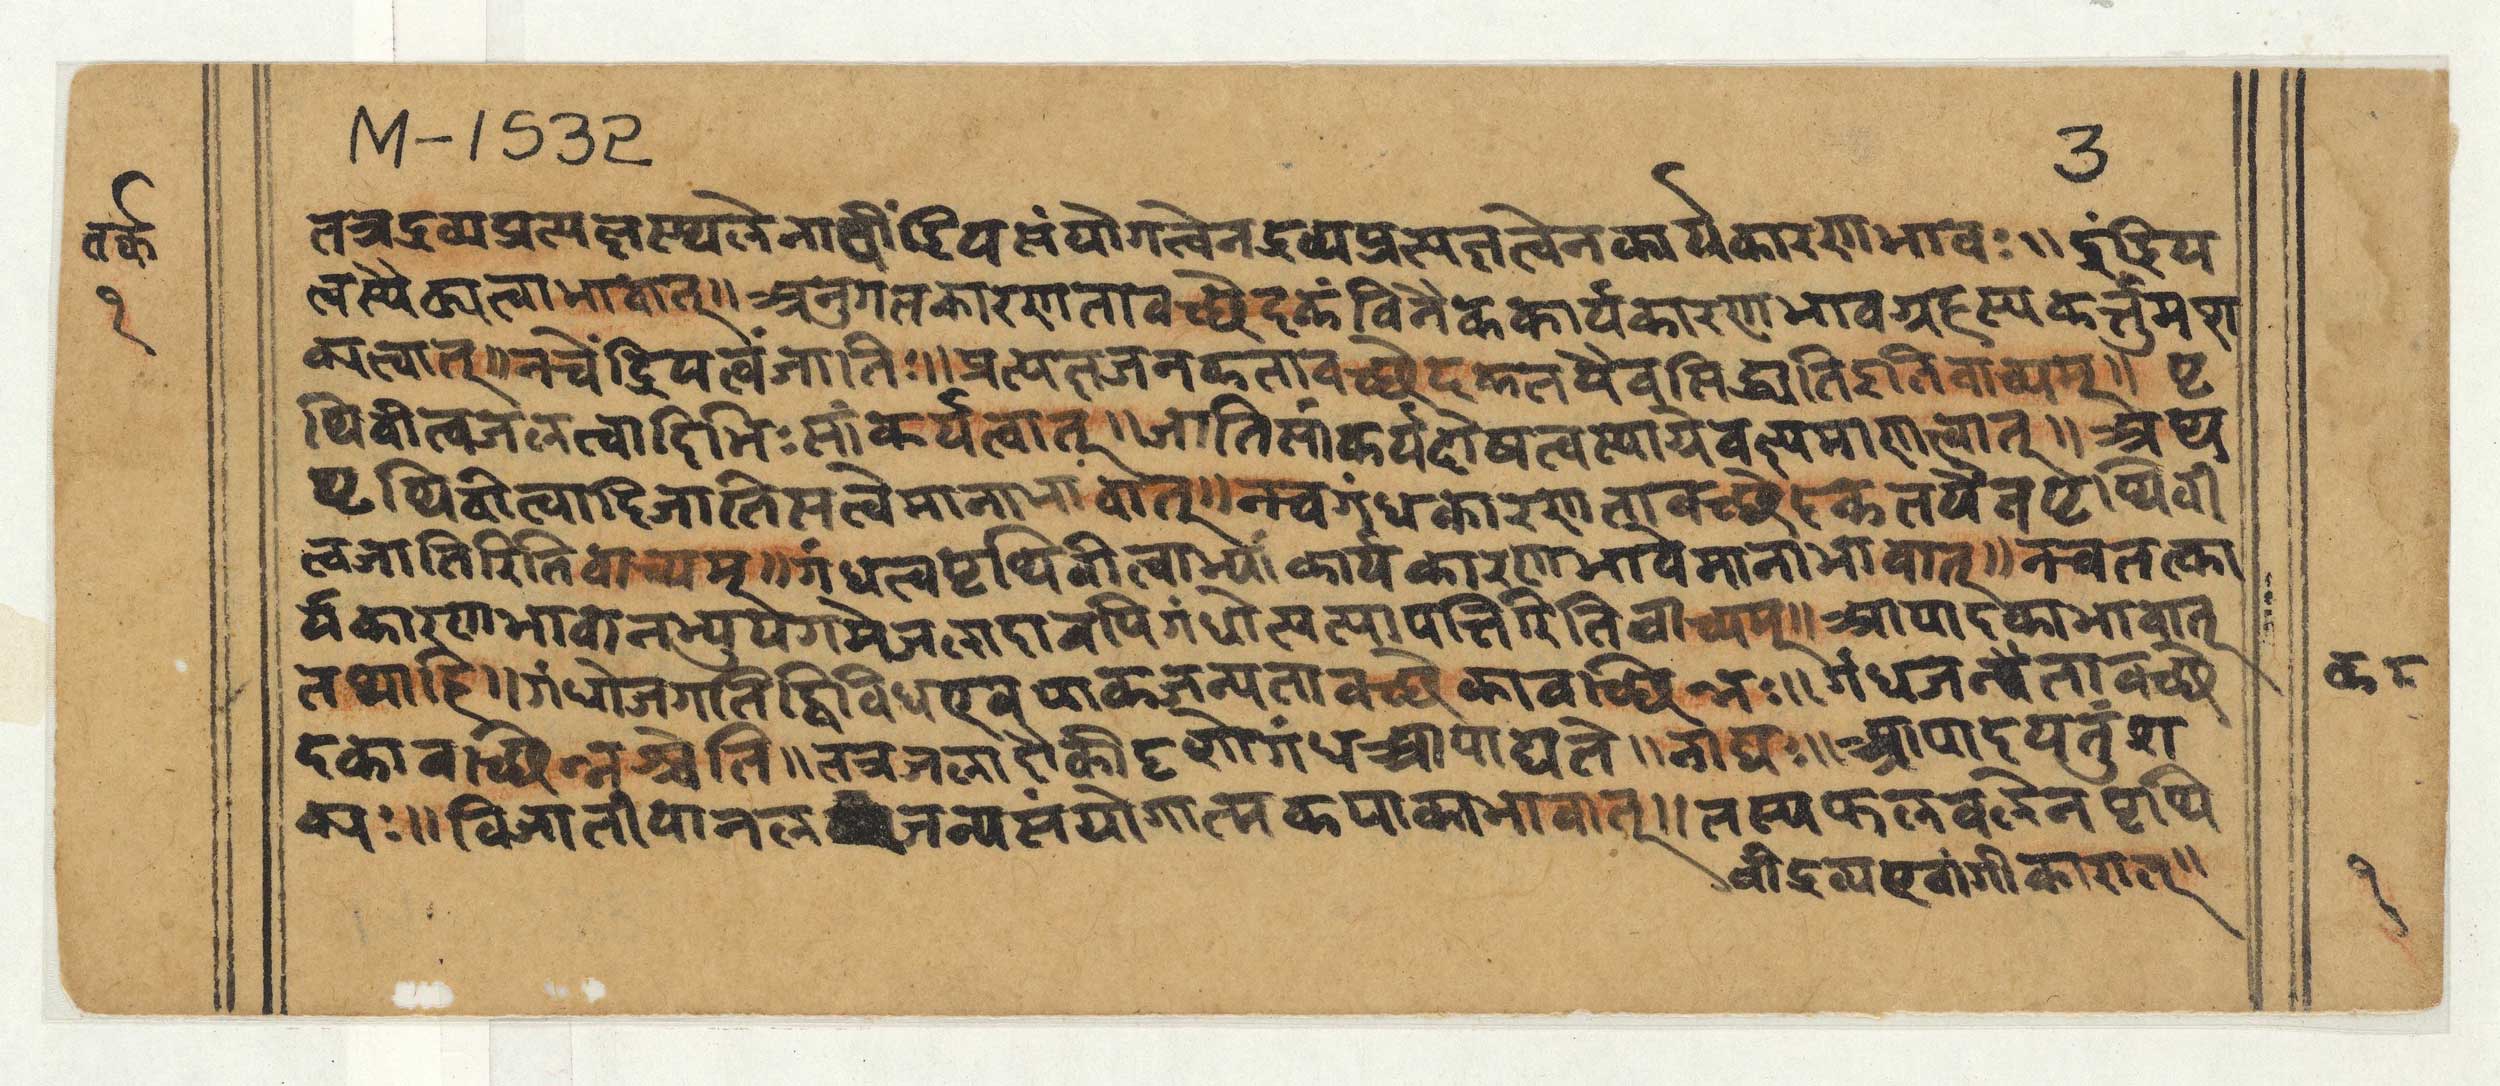 M-1532
3
तर्क
१
तत्रद्रव्यप्रत्यक्षस्थलेनातींद्रियसंयोगत्वेनद्रव्यप्रत्यक्षत्वेनकार्यकारणभावः॥इंद्रिय
त्वस्यैक्यत्वाभावात्॥अनुगतकारणतावच्छेदकंविनैककार्यकारणभावग्रहस्यकर्त्तुमश
क्यत्वात्॥नचेंद्रियत्वंजातिः॥प्रत्यक्षजनकतावच्छेदकतयैवसिद्ध्यतिइतिवाच्यम्॥पृ
थिवीत्वजलत्वादिभिःसांकर्यत्वात्॥जातिसांकर्यदोषत्वस्याग्रेवक्ष्यमाणत्वात्॥अथ
पृथिवीत्वादिजातिसत्वेमानाभावात्॥नचगंधकारणतावच्छेदकतयैवपृथिवी
त्वजातिरितिवाच्यम्॥गंधत्वपृथिवीत्वाभ्यांकार्यकारणभावेमानाभावात्॥नचतत्का
र्यकारणभावानभ्युपगमेजलादावपिगंधोत्पत्त्यापत्तिरितिवाच्यम्॥आपादकाभावात्
तथाहि॥गंधोजगतिद्विविधएवपाकजन्यतावच्छेकावच्छिन्नः॥गंधजन्यतावच्छे
दकावच्छिन्नश्चेति॥तत्रजलादौकीदृशोगंधआपाद्यते॥नाद्यः॥आपादयतुंश
क्यः॥विजातीयानलजन्यसंयोगात्मकपाकाभावात्॥तस्यफलबलेनपृथि
वीद्रव्यएवांगीकारात्॥
१